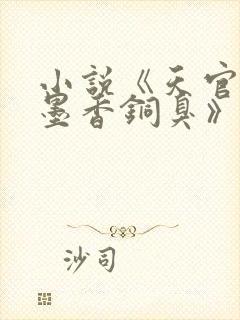 小說《天官
墨香銅臭》
沙司